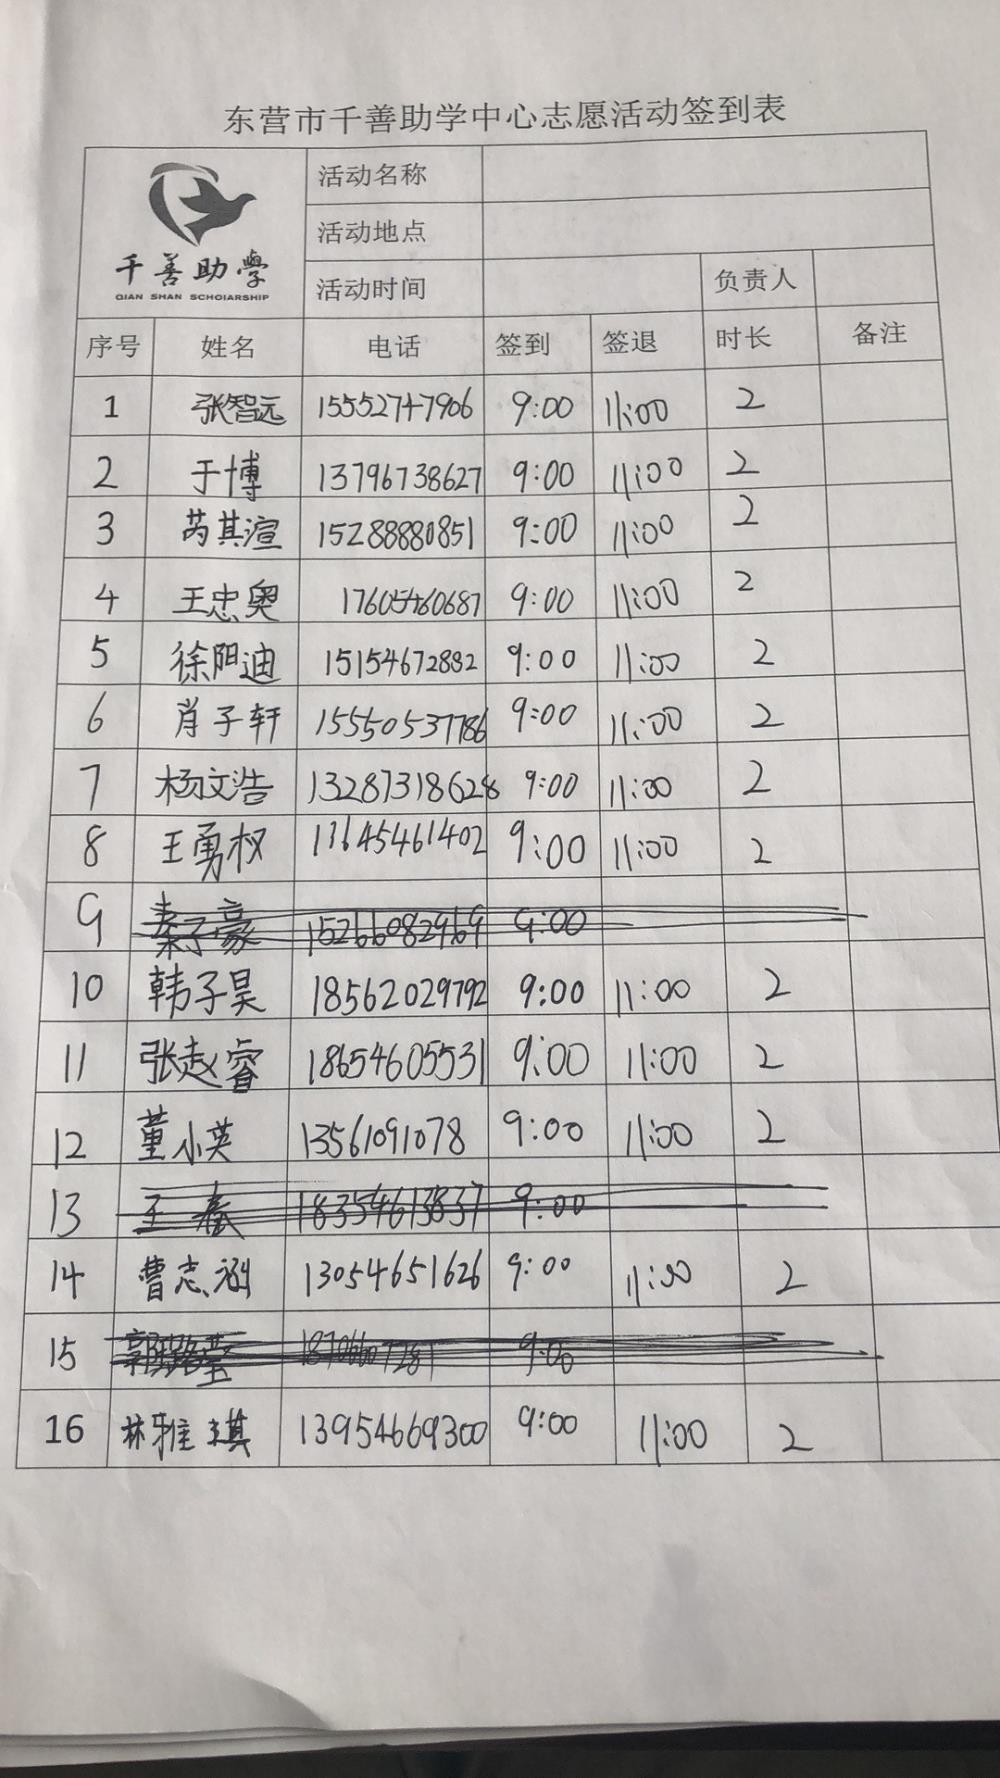 东营市千善助学中心志愿活动签到表
千善助学
QIAN SHAN SCHOIARSHIP
活动名称
活动地点
活动时间 负责人
序号 姓名 电话 签到 签退 时长 备注
1 张智远 15552747906 9:00 11:00 2
2 于博 13796738627 9:00 11:00 2
3 芮其渲 15288880851 9:00 11:00 2
4 王忠奥 17605460687 9:00 11:00 2
5 徐阳迪 15154672882 9:00 11:00 2
6 肖子轩 15550537786 9:00 11:00 2
7 杨文浩 13287318628 9:00 11:00 2
8 王勇权 13645461402 9:00 11:00 2
9 秦子豪 15266082969 9:00
10 韩子昊 18562029792 9:00 11:00 2
11 张赵睿 18654605531 9:00 11:00 2
12 董小英 13561091078 9:00 11:00 2
13 王 18354613837 9:00
14 曹志涵 13054651626 9:00 11:00 2
15 9:00
16 林雅琪 13954669300 9:00 11:00 2